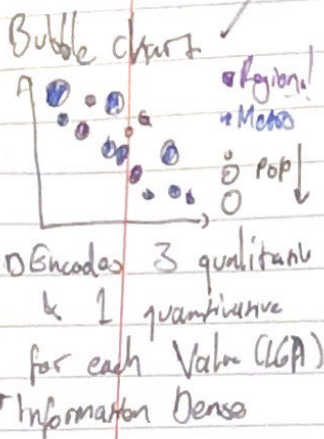 Bubble chart
Regional
Metro
Pop
Encodes 3 qualitative
& 1 quantitative
for each Value (LGA)
Information Dense